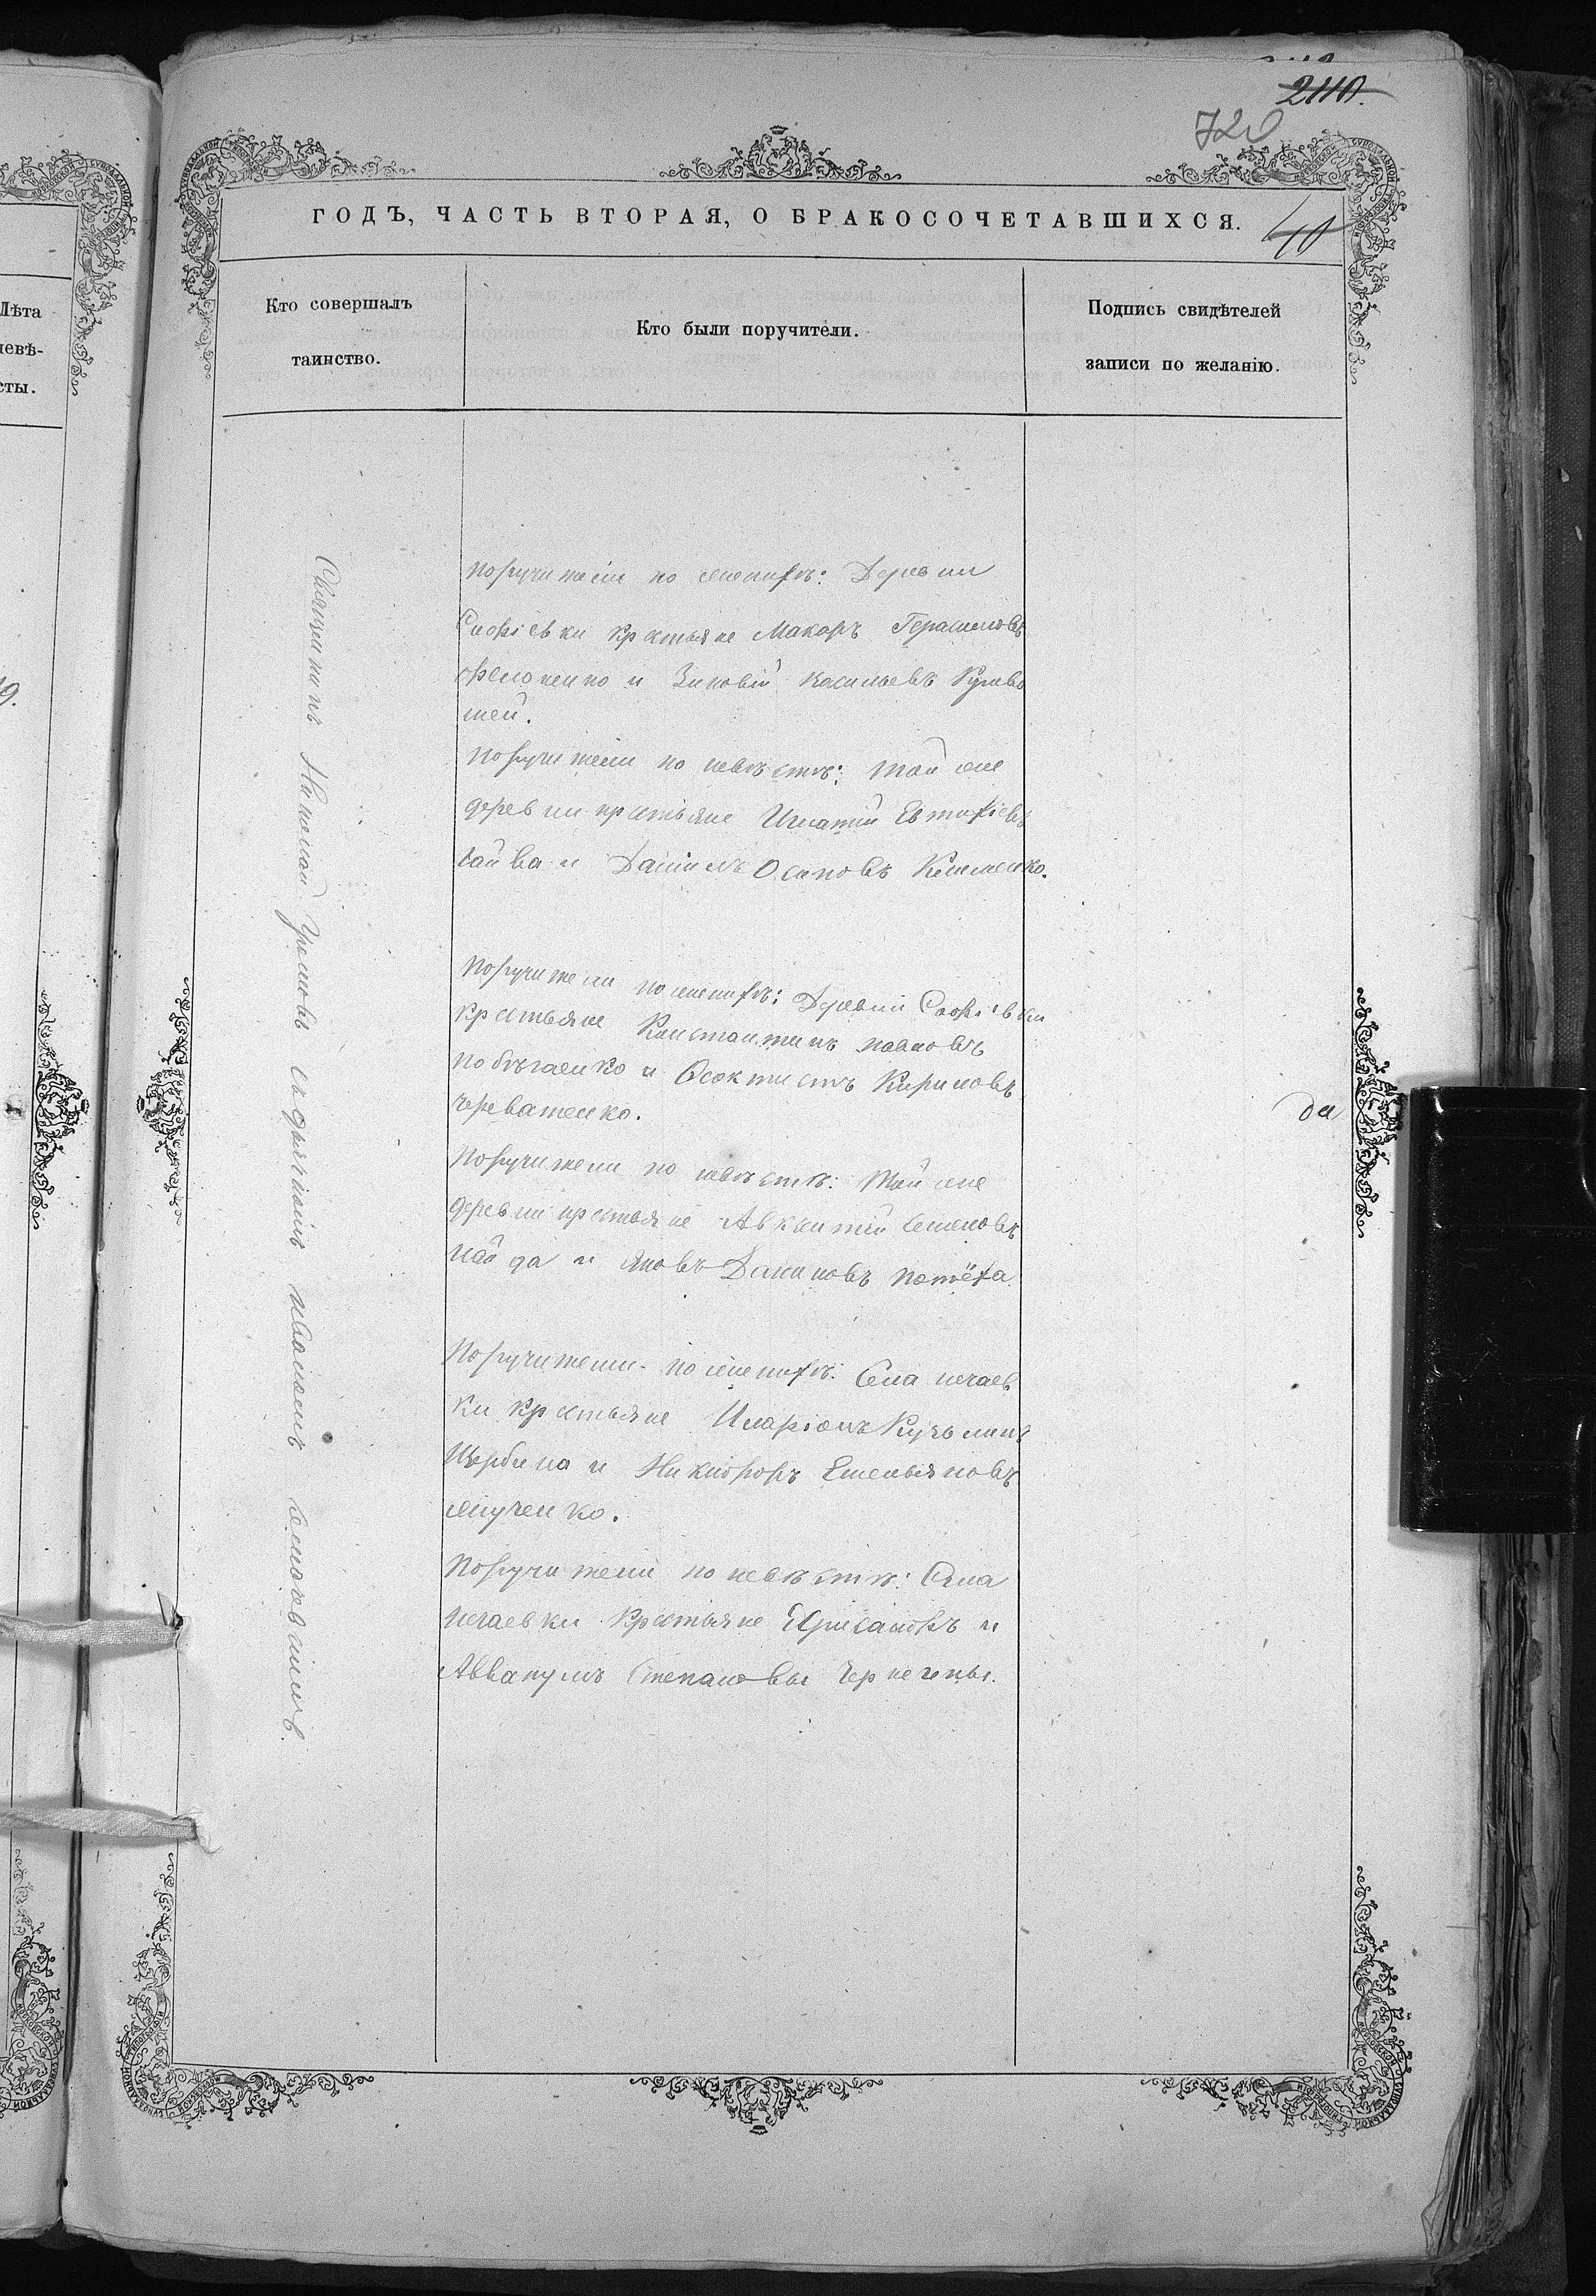 2110.
720
ГОДЪ, ЧАСТЬ ВТОРАЯ, О БРАКОСОЧЕТАВШИХСЯ.
40
Лѣта
невѣ-
сты.
9.
Кто совершалъ
таинство.
Кто были поручители.
Подпись свидѣтелей
записи по желанію.
Священникъ Николай Громовъ съ дьякономъ Иваномъ
поручители по женихѣ: Деревни
Софіевки крестьяне Макаръ Герасимовъ
и Зиновій Васильевъ Криво
шей.
поручители по невѣстѣ: той же
деревни крестьяне Игнатій Евтихіевъ
Сайва и Даніилъ Осиповъ Клименко.
поручители по женихѣ: Деревни Софіевки
крестьяне Константинъ Павловъ
побѣгаенко и Ѳеоктистъ Кириловъ
Череватенко.
поручители по невѣстѣ: той же
деревни крестьяне Авксентій Семеновъ
Найда и Яковъ Даниловъ Потёха.
да
Поручители по женихѣ: Села Нечаев
ки крестьяне Иларіонъ Кузьминъ
Щербина и Никифоръ Емельяновъ
Поручители по невѣстѣ: Села
Нечаевки крестьяне Хрисанфъ и
Аввакумъ Степановы